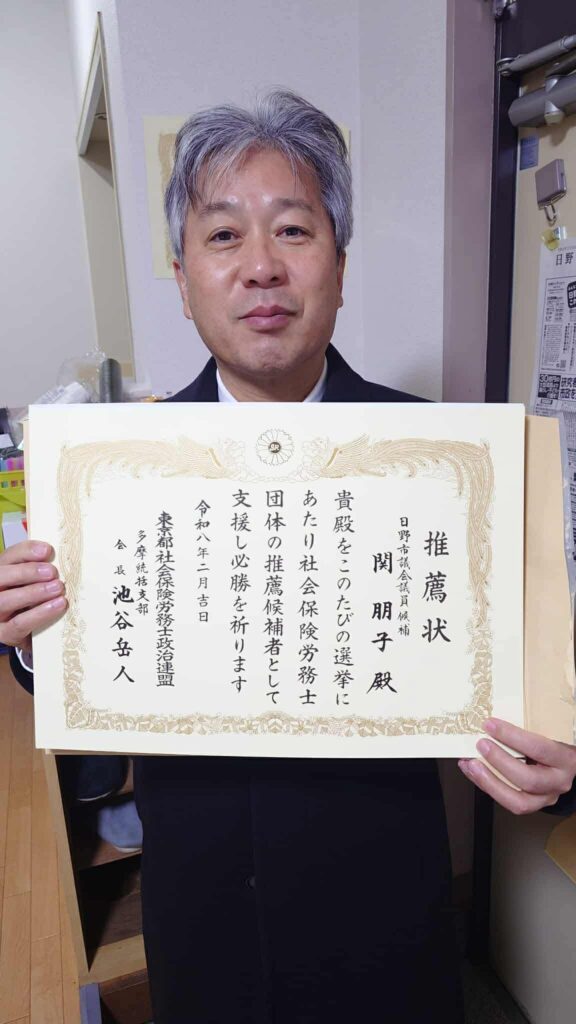 推薦状
日野市議会議員候補
関 朋子 殿
貴殿をこのたびの選挙に
あたり社会保険労務士
団体の推薦候補者として
支援し必勝を祈ります
令和八年二月吉日
東京都社会保険労務士政治連盟
多摩統括支部
会長 池谷岳人
SR
日野